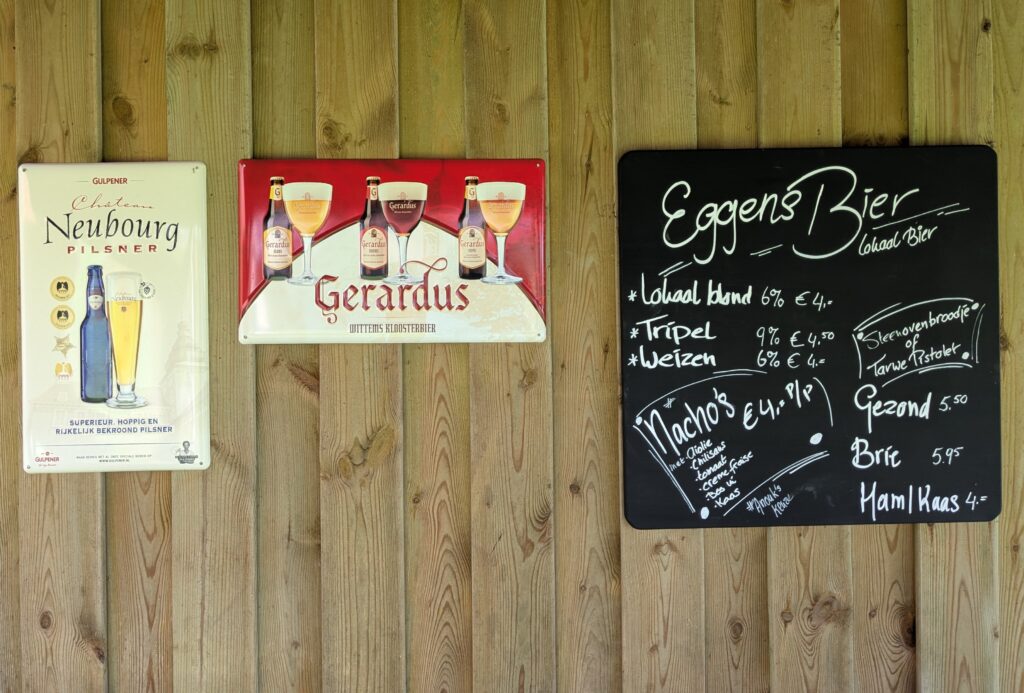 GULPENER
Château
Neubourg
PILSNER
SUPERIEUR, HOPPIG EN
RIJKELIJK BEKROOND PILSNER
GULPENER
WWW.GULPENER.NL
Gerardus
WITTEMS KLOOSTERBIER
Eggens Bier
Lokaal Bier
* Lokaal blond 6% € 4,-
* Tripel 9% € 4,50
* Weizen 6% € 4,-
Nacho's € 4,- P/P
met
· Chilisaus
· tomaat
· creme fraise
· Bos ui
· Kaas
#Anouk's
Keuze
Steenovenbroodje
of
Tarwe Pistolet
Gezond 5.50
Brie 5.95
Ham/Kaas 4.-